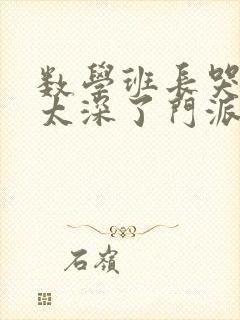 数學班長哭
太深了門派
石嶺